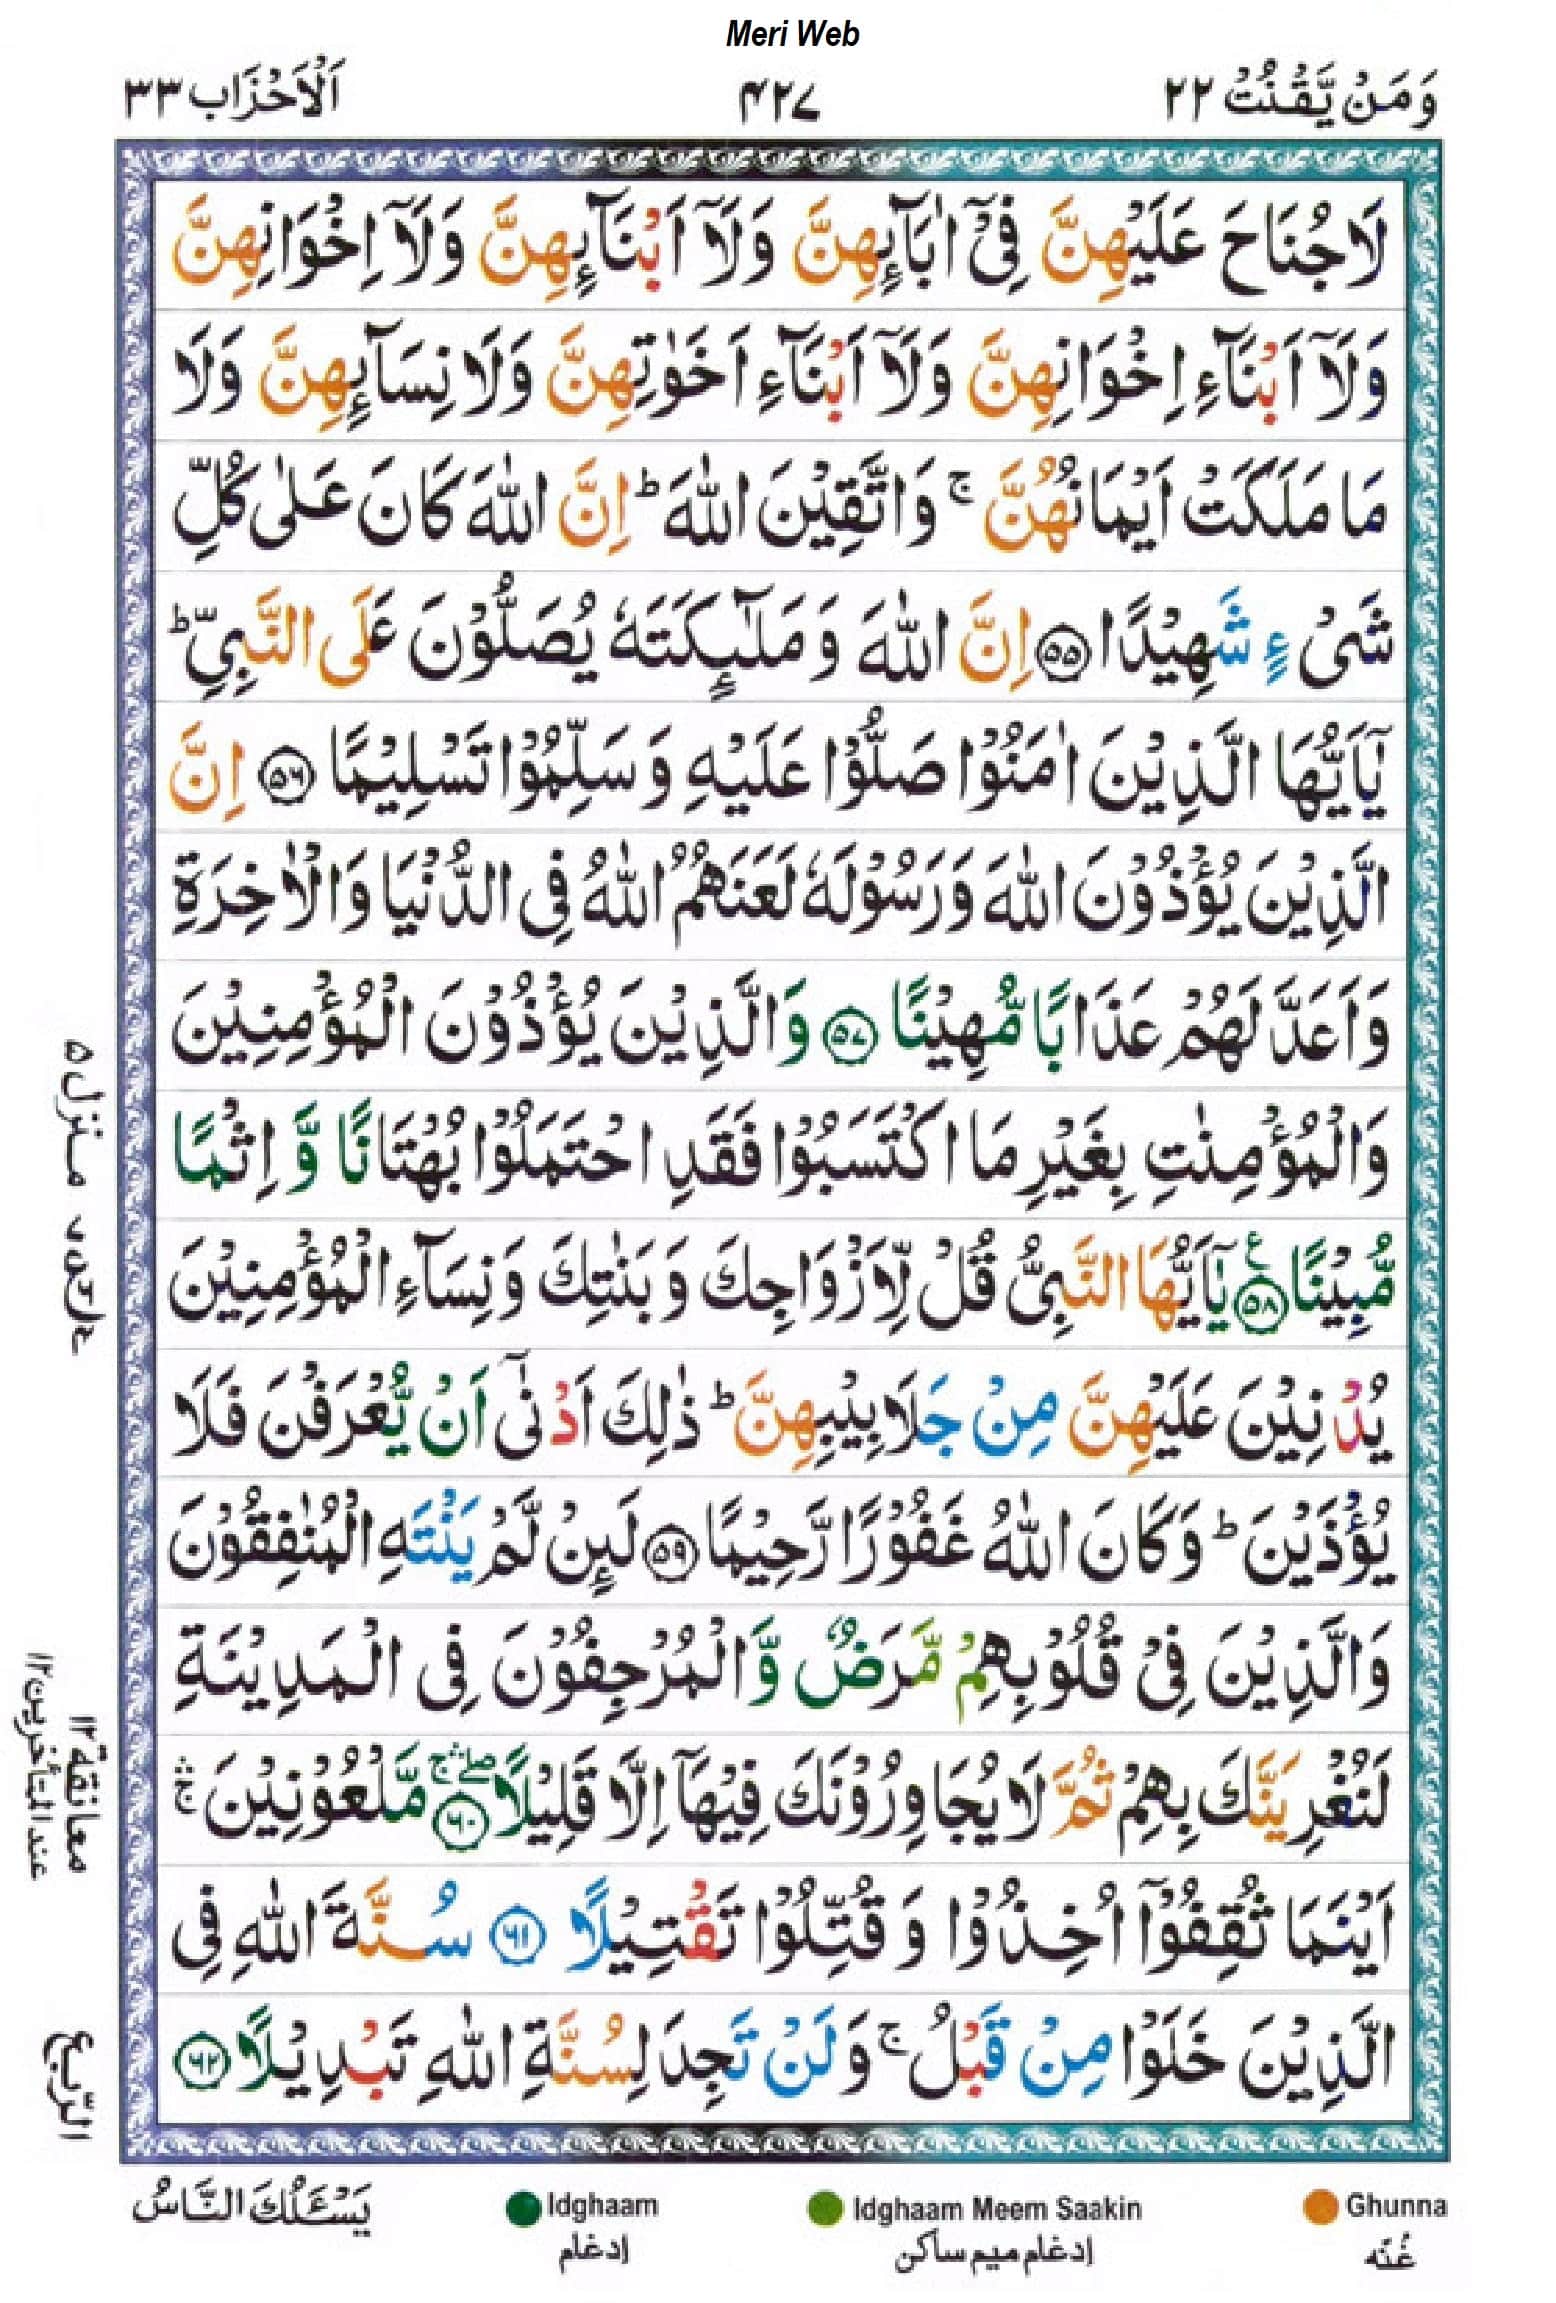 Meri Web
وَمَنْ يَّقْنُتْ ٢٢
٤٢٧
اَلْاَحْزَاب ٣٣
لَا جُنَاحَ عَلَيْهِنَّ فِيْٓ اٰبَآئِهِنَّ وَلَآ اَبْنَآئِهِنَّ وَلَآ اِخْوَانِهِنَّ
وَلَآ اَبْنَآءِ اِخْوَانِهِنَّ وَلَآ اَبْنَآءِ اَخَوٰتِهِنَّ وَلَا نِسَآئِهِنَّ وَلَا
مَا مَلَكَتْ اَيْمَانُهُنَّ ۚ وَاتَّقِيْنَ اللّٰهَ ؕ اِنَّ اللّٰهَ كَانَ عَلٰى كُلِّ
شَيْءٍ شَهِيْدًا ﴿٥٥﴾ اِنَّ اللّٰهَ وَمَلٰٓئِكَتَهٗ يُصَلُّوْنَ عَلَى النَّبِيِّ ؕ
يٰٓاَيُّهَا الَّذِيْنَ اٰمَنُوْا صَلُّوْا عَلَيْهِ وَسَلِّمُوْا تَسْلِيْمًا ﴿٥٦﴾ اِنَّ
الَّذِيْنَ يُؤْذُوْنَ اللّٰهَ وَرَسُوْلَهٗ لَعَنَهُمُ اللّٰهُ فِي الدُّنْيَا وَالْاٰخِرَةِ
وَاَعَدَّ لَهُمْ عَذَابًا مُّهِيْنًا ﴿٥٧﴾ وَالَّذِيْنَ يُؤْذُوْنَ الْمُؤْمِنِيْنَ
وَالْمُؤْمِنٰتِ بِغَيْرِ مَا اكْتَسَبُوْا فَقَدِ احْتَمَلُوْا بُهْتَانًا وَّاِثْمًا
مُّبِيْنًا ﴿٥٨﴾ ع يٰٓاَيُّهَا النَّبِيُّ قُلْ لِّاَزْوَاجِكَ وَبَنٰتِكَ وَنِسَآءِ الْمُؤْمِنِيْنَ
يُدْنِيْنَ عَلَيْهِنَّ مِنْ جَلَابِيْبِهِنَّ ؕ ذٰلِكَ اَدْنٰٓى اَنْ يُّعْرَفْنَ فَلَا
يُؤْذَيْنَ ؕ وَكَانَ اللّٰهُ غَفُوْرًا رَّحِيْمًا ﴿٥٩﴾ لَئِنْ لَّمْ يَنْتَهِ الْمُنٰفِقُوْنَ
وَالَّذِيْنَ فِيْ قُلُوْبِهِمْ مَّرَضٌ وَّالْمُرْجِفُوْنَ فِي الْمَدِيْنَةِ
لَنُغْرِيَنَّكَ بِهِمْ ثُمَّ لَا يُجَاوِرُوْنَكَ فِيْهَآ اِلَّا قَلِيْلًا ﴿٦٠﴾ مَّلْعُوْنِيْنَ ۛۚ
اَيْنَمَا ثُقِفُوْٓا اُخِذُوْا وَقُتِّلُوْا تَقْتِيْلًا ﴿٦١﴾ سُنَّةَ اللّٰهِ فِي
الَّذِيْنَ خَلَوْا مِنْ قَبْلُ ۚ وَلَنْ تَجِدَ لِسُنَّةِ اللّٰهِ تَبْدِيْلًا ﴿٦٢﴾
منزل ٥
معانقة ١٢
عند المتأخرين ١٢
الرّبع
Idghaam
ادغام
Idghaam Meem Saakin
ادغام ميم ساكن
Ghunna
غُنّه
يَسْـَٔلُكَ النَّاسُ